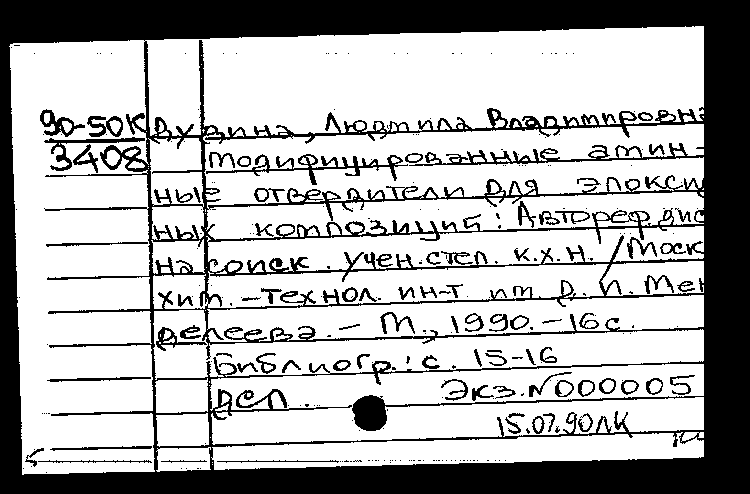 90-50К Дудина, Людмила Владимировна
3408 Модифицированные амин-
ные отвердители для эпоксид
ных композиций: Автореф.дис
на соиск. учен.степ. к.х.н. / Моск
хим.-технол. ин-т им. Д. И. Мен
делеева. - М., 1990. - 16 с.
Библиогр.: с. 15-16
ДСП. Экз.№000005
15.07.90 ЛК